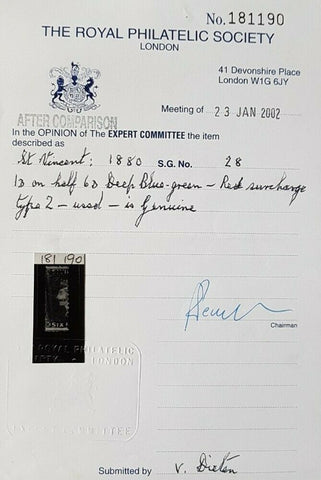 No. 181190
THE ROYAL PHILATELIC SOCIETY
LONDON
41 Devonshire Place
London W1G 6JY
Meeting of 23 JAN 2002
AFTER COMPARISON
In the OPINION of The EXPERT COMMITTEE the item
described as
St Vincent; 1880 S.G. No. 28
1D on half 6D Deep Blue-green - Red surcharge
type 2 - used - is Genuine
181 190
SIX
Chairman
ROYAL PHILATELIC
LONDON
COMMITTEE
Submitted by V. Dieten